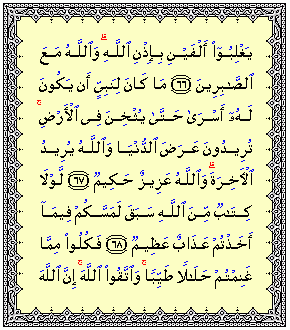 يَغْلِبُوٓا۟ أَلْفَيْنِ بِإِذْنِ ٱللَّهِ ۗ وَٱللَّهُ مَعَ
ٱلصَّـٰبِرِينَ ﴿٦٦﴾ مَا كَانَ لِنَبِىٍّ أَن يَكُونَ
لَهُۥٓ أَسْرَىٰ حَتَّىٰ يُثْخِنَ فِى ٱلْأَرْضِ ۚ
تُرِيدُونَ عَرَضَ ٱلدُّنْيَا وَٱللَّهُ يُرِيدُ
ٱلْـَٔاخِرَةَ ۗ وَٱللَّهُ عَزِيزٌ حَكِيمٌ ﴿٦٧﴾ لَّوْلَا
كِتَـٰبٌ مِّنَ ٱللَّهِ سَبَقَ لَمَسَّكُمْ فِيمَآ
أَخَذْتُمْ عَذَابٌ عَظِيمٌ ﴿٦٨﴾ فَكُلُوا۟ مِمَّا
غَنِمْتُمْ حَلَـٰلًا طَيِّبًا ۚ وَٱتَّقُوا۟ ٱللَّهَ ۚ إِنَّ ٱللَّهَ